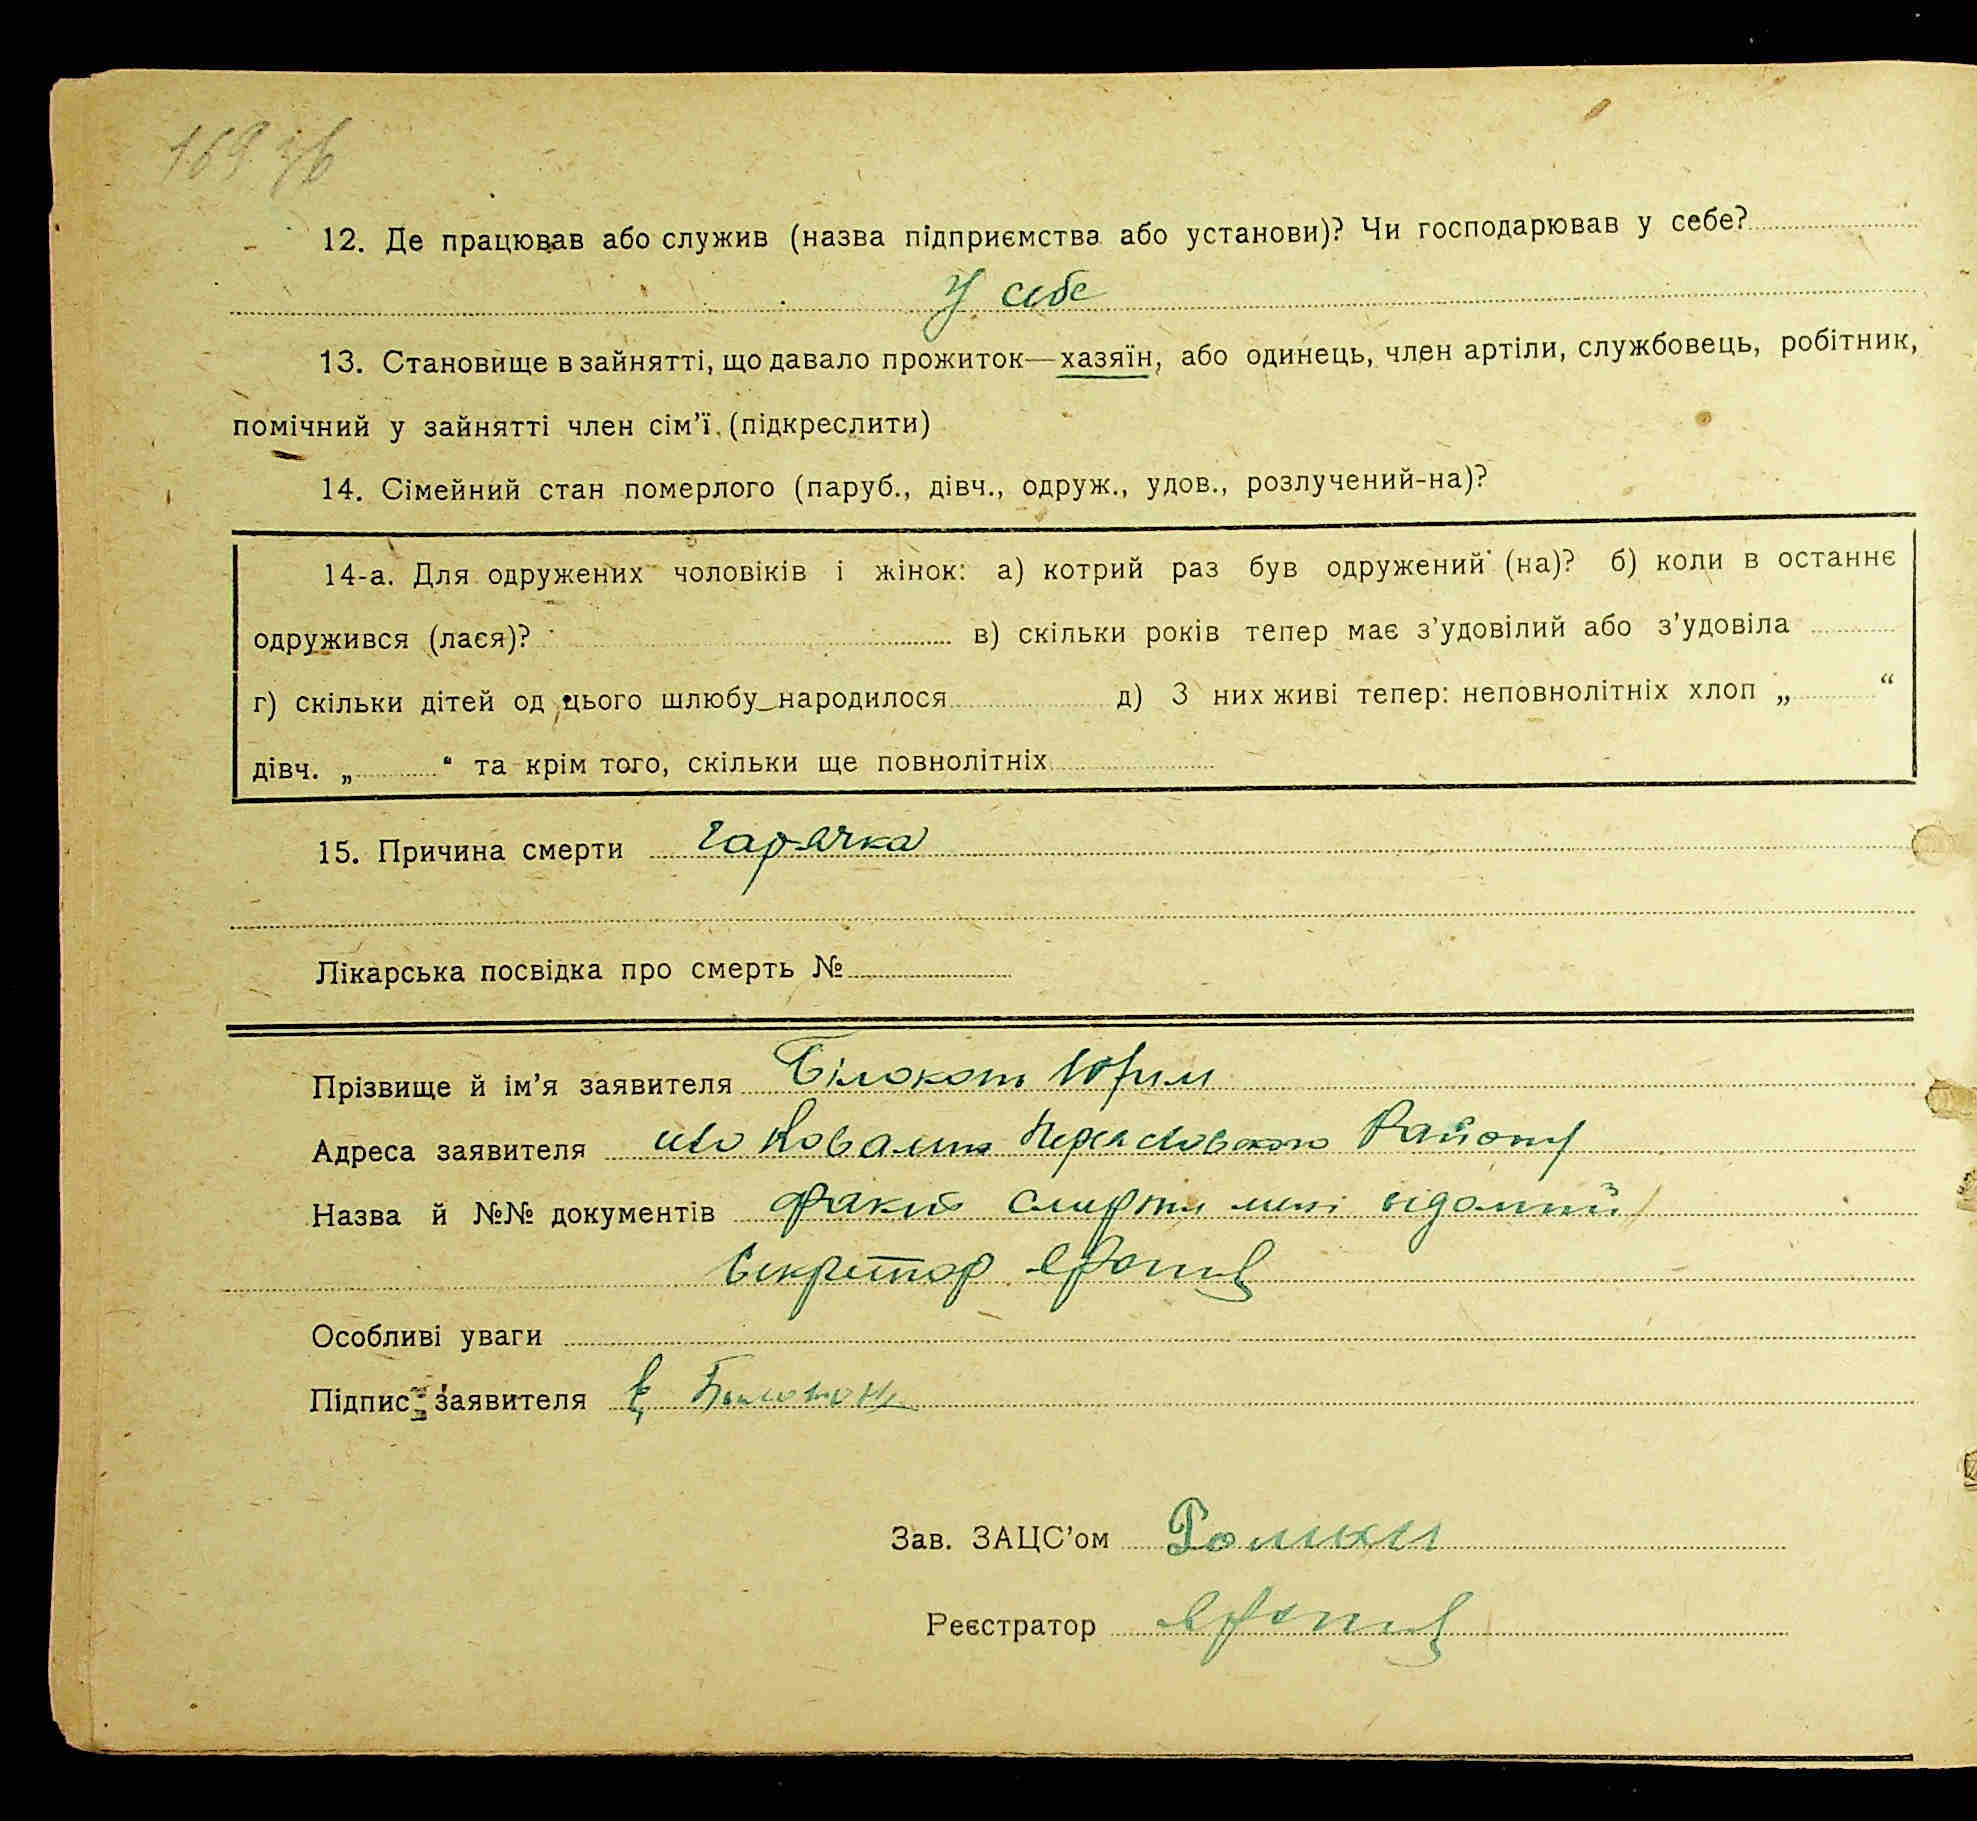 169 зв
12. Де працював або служив (назва підприємства або установи)? Чи господарював у себе?
У себе
13. Становище в зайнятті, що давало прожиток—хазяїн, або одинець, член артіли, службовець, робітник,
помічний у зайнятті член сім’ї (підкреслити)
14. Сімейний стан померлого (паруб., дівч., одруж., удов., розлучений-на)?
14-а. Для одружених чоловіків і жінок: а) котрий раз був одружений (на)? б) коли в останнє
одружився (лася)? в) скільки років тепер має з’удовілий або з’удовіла
г) скільки дітей од цього шлюбу народилося д) З них живі тепер: неповнолітніх хлоп „ “
дівч. „ “ та крім того, скільки ще повнолітніх
15. Причина смерти гарячка
Лікарська посвідка про смерть №
Прізвище й ім’я заявителя Білоконь
Адреса заявителя Ковалин Переяславського Району
Назва й №№ документів факт смерти мені відомий
Секретар
Особливі уваги
Підпис заявителя Билоконь
Зав. ЗАЦС’ом
Реєстратор